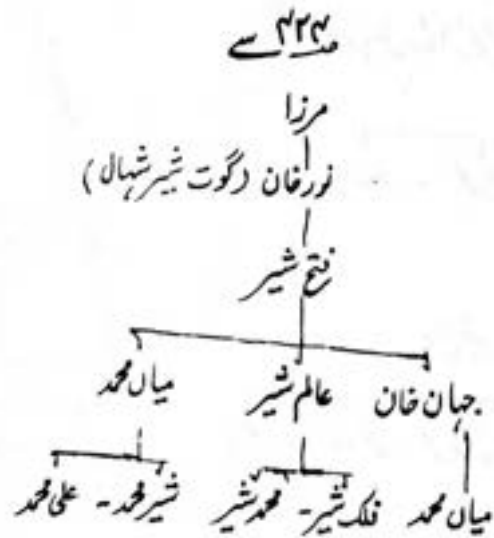 ص۴۲۳ سے
مرزا
نور خان (گوت شیر شہال)
فتح شیر
جہان خان عالم شیر میاں محمد
میاں محمد فلک شیر - محمد شیر شیر محمد - علی محمد